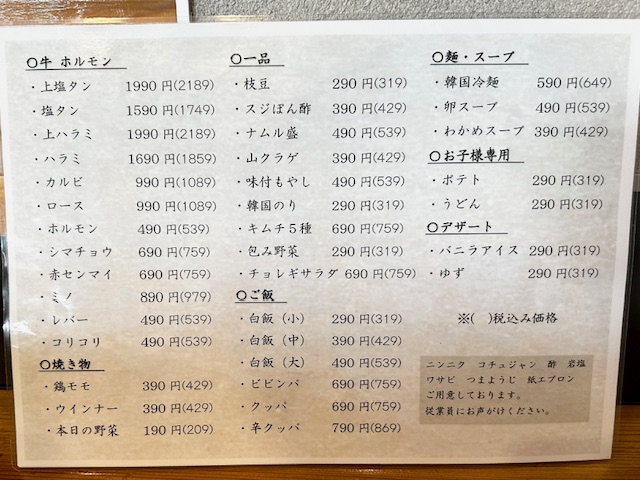 ○牛 ホルモン
・上塩タン 1990 円(2189)
・塩タン 1590 円(1749)
・上ハラミ 1990 円(2189)
・ハラミ 1690 円(1859)
・カルビ 990 円(1089)
・ロース 990 円(1089)
・ホルモン 490 円(539)
・シマチョウ 690 円(759)
・赤センマイ 690 円(759)
・ミノ 890 円(979)
・レバー 490 円(539)
・コリコリ 490 円(539)
○焼き物
・鶏モモ 390 円(429)
・ウインナー 390 円(429)
・本日の野菜 190 円(209)
○一品
・枝豆 290 円(319)
・スジぽん酢 390 円(429)
・ナムル盛 490 円(539)
・山クラゲ 390 円(429)
・味付もやし 490 円(539)
・韓国のり 290 円(319)
・キムチ５種 690 円(759)
・包み野菜 290 円(319)
・チョレギサラダ 690 円(759)
○ご飯
・白飯（小） 290 円(319)
・白飯（中） 390 円(429)
・白飯（大） 490 円(539)
・ビビンバ 690 円(759)
・クッパ 690 円(759)
・辛クッパ 790 円(869)
○麺・スープ
・韓国冷麺 590 円(649)
・卵スープ 490 円(539)
・わかめスープ 390 円(429)
○お子様専用
・ポテト 290 円(319)
・うどん 290 円(319)
○デザート
・バニラアイス 290 円(319)
・ゆず 290 円(319)
※( )税込み価格
ニンニク コチュジャン 酢 岩塩
ワサビ つまようじ 紙エプロン
ご用意しております。
従業員にお声がけください。